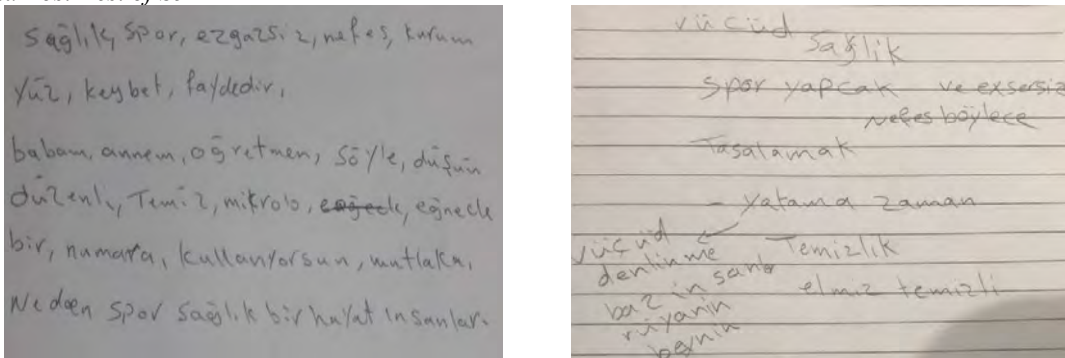 sağlık, spor, ezgazsiz, nefes, kurum
yüz, keybet, faydedir,
babam, annem, oğretmen, söyle, düşün
düzenli, Temiz, mikrob, eğneck
bir, numara, kullanyorsun, mutlaka,
Neden spor sağlık bir hayat insanlar.
vücüd
sağlik
spor yapcak ve exsersiz
Nefes böylece
Tasalamak
- yatama zaman
vüçüd
denlinme
baz insanlar
rüyanin
beynin
Temizlik
elmiz temizli